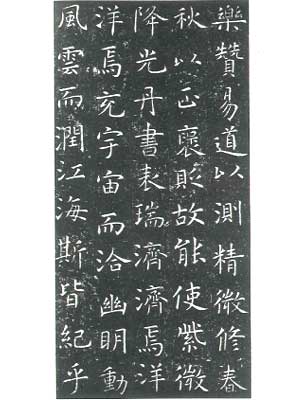 樂贊易道以測精微修春
秋以正褒貶故能使紫微
降光丹書表瑞濟濟焉洋
洋焉充宇宙而洽幽明動
風雲而潤江海斯皆紀乎